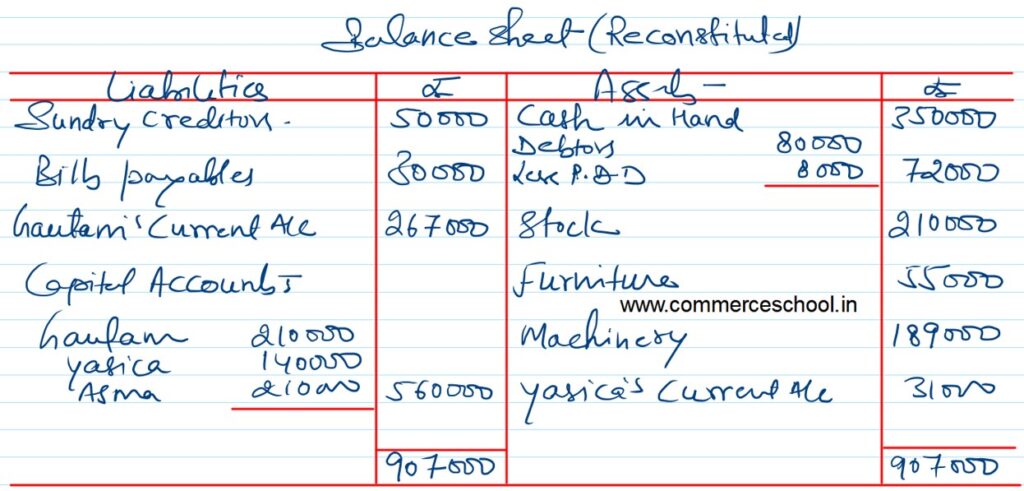 Balance Sheet (Reconstituted)
Liabilities ₹ Assets ₹
Sundry Creditors. 50000 Cash in Hand 350000
Debtors 80000
Bills payables 30000 Less P.B.D 8000 72000
Gautam's Current A/c 267000 Stock 210000
Capital Accounts: Furniture 55000
www.commerceschool.in
Gautam 210000 Machinery 189000
Yasica 140000
Asma 210000 560000 Yasica's Current A/c 31000
907000 907000